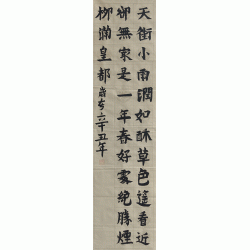 天街小雨潤如酥草色遙看近
卻無最是一年春好處絕勝煙
柳滿皇都 歲在辛丑年